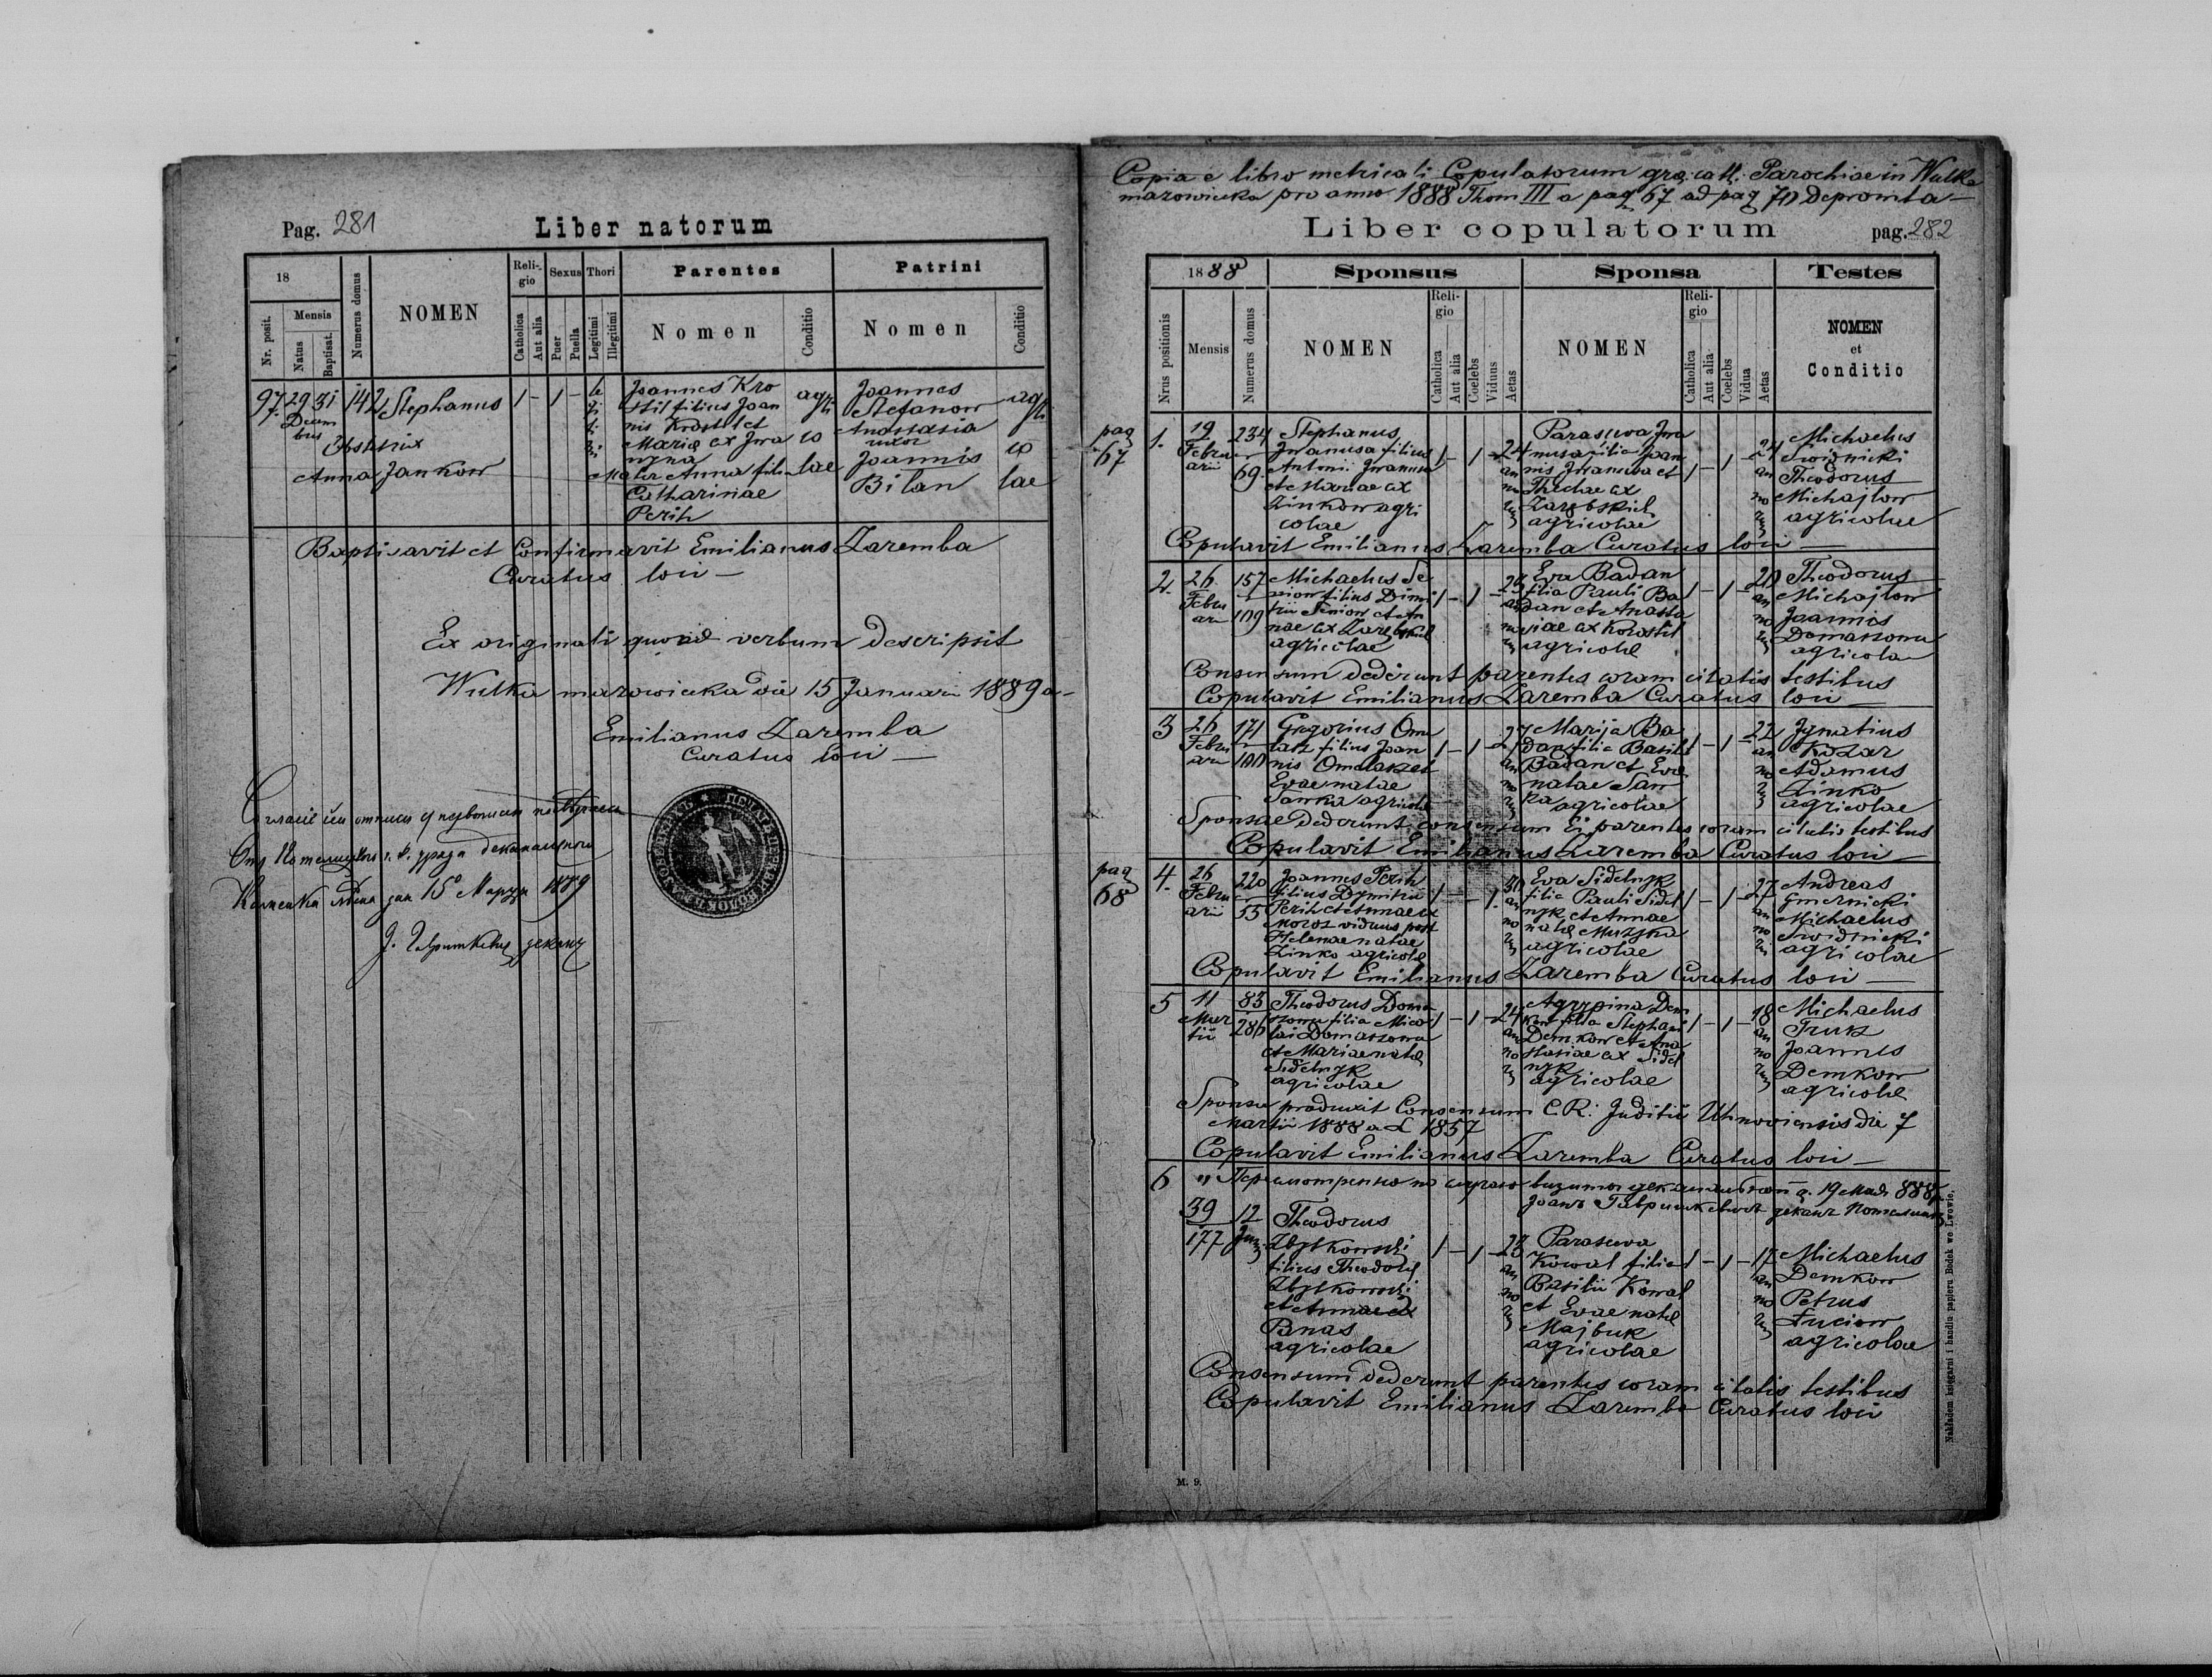 Pag. 281
Liber natorum
18
Numerus domus
NOMEN
Reli-
gio
Sexus
Thori
Parentes
Patrini
Nr. posit.
Mensis
Natus
Baptisat.
Catholica
Aut alia
Puer
Puella
Legitimi
Illegitimi
Nomen
Conditio
Nomen
Conditio
97. 29 31 142 Stephanus 1 - 1 -
Decem
bris
Obstetrix
Anna Jankow
le
gi
ti
mi
Joannes Kro
stil filius Joan
nis Krostil et
Mariae ex Iwa
nyna
Mater Anna filia
Catharinae
Perih
agri
co
lae
Joannes
Stefanow
Anastasia
uxor
Joannis
Bilan
ag
ri
co
lae
Baptisavit et Confirmavit Emilianus Zaremba
Curatus loci —
Ex originali quoad verbum descripsit
Wulka mazowiecka die 15 Januarii 1889 a-
Emilianus Zaremba
Curatus loci —
15 Марца 1889
Copia e libro metricali Copulatorum gr. catt. Parochiae in Wulka
mazowiecka pro anno 1888 Thom III a pag 67 ad pag 70 Depromta —
Liber copulatorum
pag. 282
1888
Sponsus
Sponsa
Testes
Nrus positionis
Mensis
Numerus domus
NOMEN
Reli-
gio
Catholica
Aut alia
Coelebs
Viduus
Aetas
NOMEN
Reli-
gio
Catholica
Aut alia
Coelebs
Vidua
Aetas
NOMEN
et
Conditio
pag
67
1. 19
Febru
arii
234
69
Stephanus
Iwanusa filius
Antonii Iwanusa
et Mariae ex
Zinkow agri
colae
1 - 1 - 24
an
no
rum
Parascewa Iwa
nusa filia Joan
nis Iwanusa et
Theclae ex
Zarębskich
agricolae
1 - 1 - 24
an
no
rum
Michaelus
Swidnicki
Theodorus
Michajlow
agricolae
Copulavit Emilianus Zaremba Curatus loci —
2. 26
Febru
arii
157
109
Michaelus Se
niow filius Dimi
trii Seniow et An
nae ex Zarębskich
agricolae
1 - 1 -
an
no
rum
Eva Badan
filia Pauli Ba
dan et Anasta
siae ex Korostil
agricolae
1 - 1 - 20
an
no
rum
Theodorus
Michajlow
Joannes
Domaszowu
agricolae
Consensum dederunt parentes coram citatis testibus
Copulavit Emilianus Zaremba Curatus loci —
3 26
Febru
arii
171
100
Gregorius Ome
lasz filius Joan
nis Omelasz et
Evae natae
Sanka agricolae
1 - 1 - 27
an
no
rum
Marija Ba
dan filia Basilii
Badan et Evae
natae San
ka agricolae
1 - 1 - 22
an
no
rum
Ignatius
Kozar
Adamus
Zinko
agricolae
Sponsae dederunt consensum Ei parentes coram citatis testibus
Copulavit Emilianus Zaremba Curatus loci —
pag
68
4. 26
Febru
arii
220
55
Joannes Perih
filius Dymitrii
Perih et Annae ex
Moroz viduus post
Helenae natae
Zinko agricolae
1 - - 1. 30
an
no
rum
Eva Sidelnyk
filia Pauli Sidel
nyk et Annae
natae Muzyka
agricolae
1 - 1 - 27
an
no
rum
Andreas
Gmernicki
Michaelus
Swidnicki
agricolae
Copulavit Emilianus Zaremba Curatus loci —
5 11
Mar
tii
83
286
Theodorus Doma
szowu filia Mico
lai Domaszowu
et Mariae natae
Sidelnyk
agricolae
1 - 1 - 24
an
no
rum
Agrypina Dem
kow filia Stephani
Demkow et Ana
stasiae ex Sidel
nyk
agricolae
1 - 1 - 18
an
no
rum
Michaelus
Truk
Joannes
Demkow
agricolae
Sponsa produxit Consensum C.R. Juditii Uhnoviensis die 7
Martii 1888 a L 1857
Copulavit Emilianus Zaremba Curatus loci —
6
39
177
12
Juni
Theodorus
Zbytkowski
filius Theodori
Zbytkowski
et Annae ex
Panas
agricolae
1 - 1 - 23
an
no
rum
Parascewa
Kowal filia
Basilii Kowal
et Evae natae
Majbuk
agricolae
1 - 1 - 17
an
no
rum
Michaelus
Demkow
Petrus
Luciow
agricolae
Consensum dederunt parentes coram citatis testibus
Copulavit Emilianus Zaremba Curatus loci
Nakładem księgarni i handlu papieru Bodek we Lwowie.
M. 9.